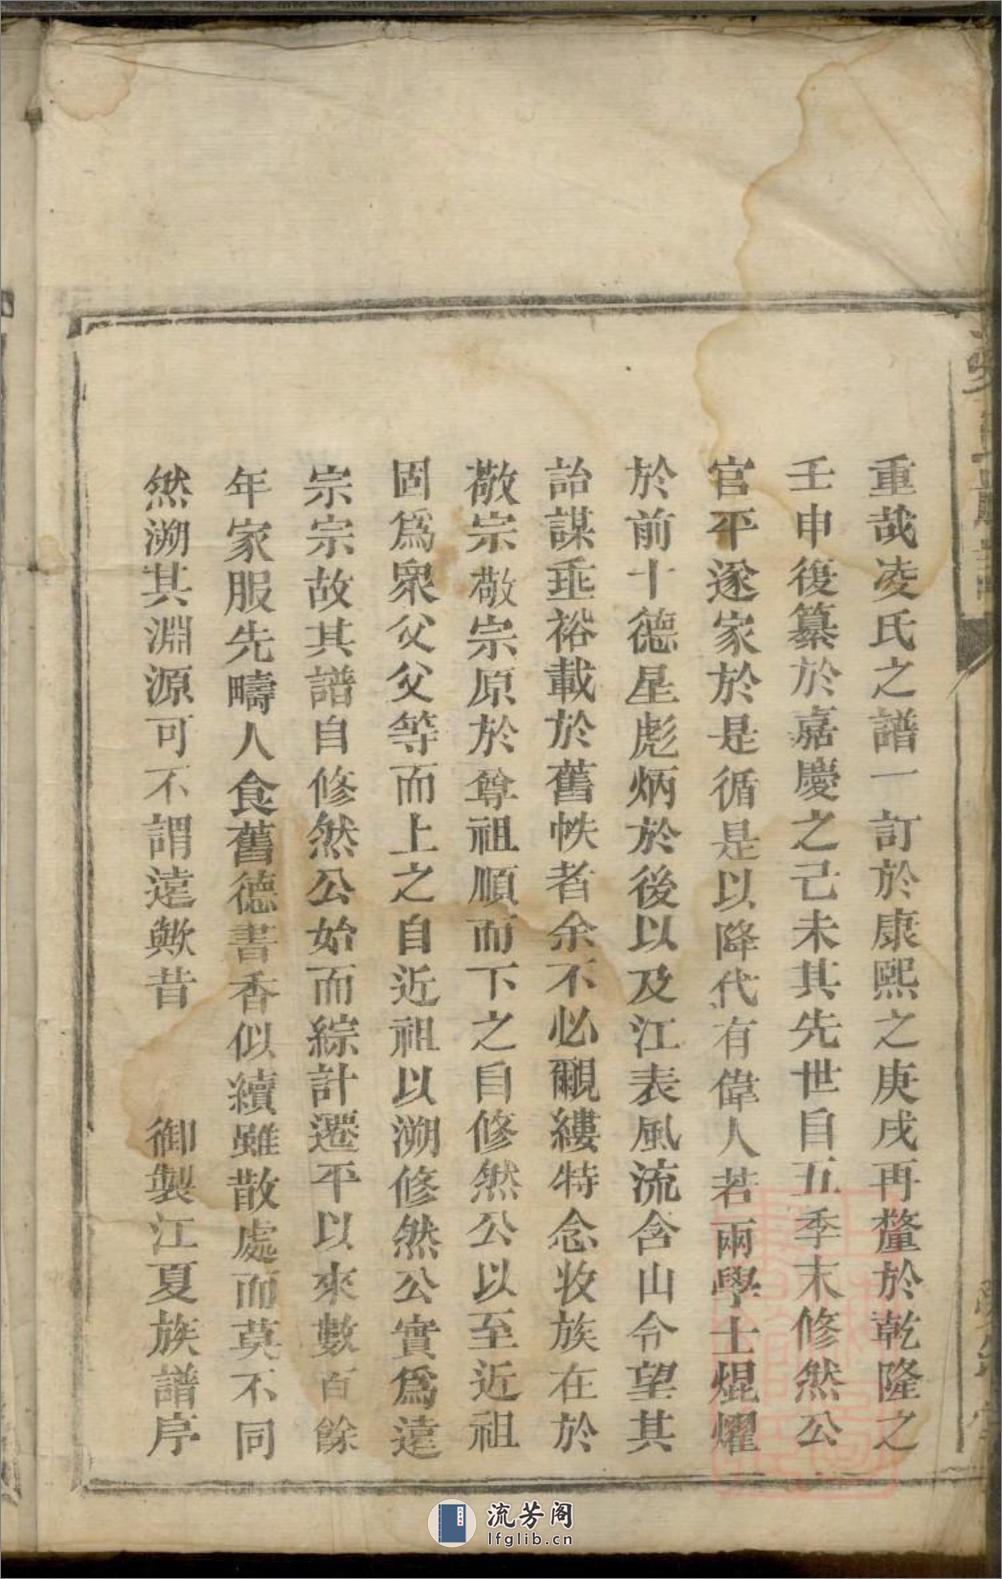 重哉凌氏之譜一訂於康熙之庚戌再釐於乾隆之
壬申後纂於嘉慶之己未其先世自五季末修然公
官平遂家於是循是以降代有偉人若兩學士焜燿
於前十德星彪炳於後以及江表風流含山令望其
詒謀垂裕載於舊帙者余不必覼縷特念收族在於
敬宗敬宗原於尊祖順而下之自修然公以至近祖
固爲衆父父等而上之自近祖以溯修然公實爲遠
宗宗故其譜自修然公始而綜計遷平以來數百餘
年家服先疇人食舊德書香似續雖散處而莫不同
然溯其淵源可不謂遠歟昔　御製江夏族譜序
流芳阁
lfglib.cn